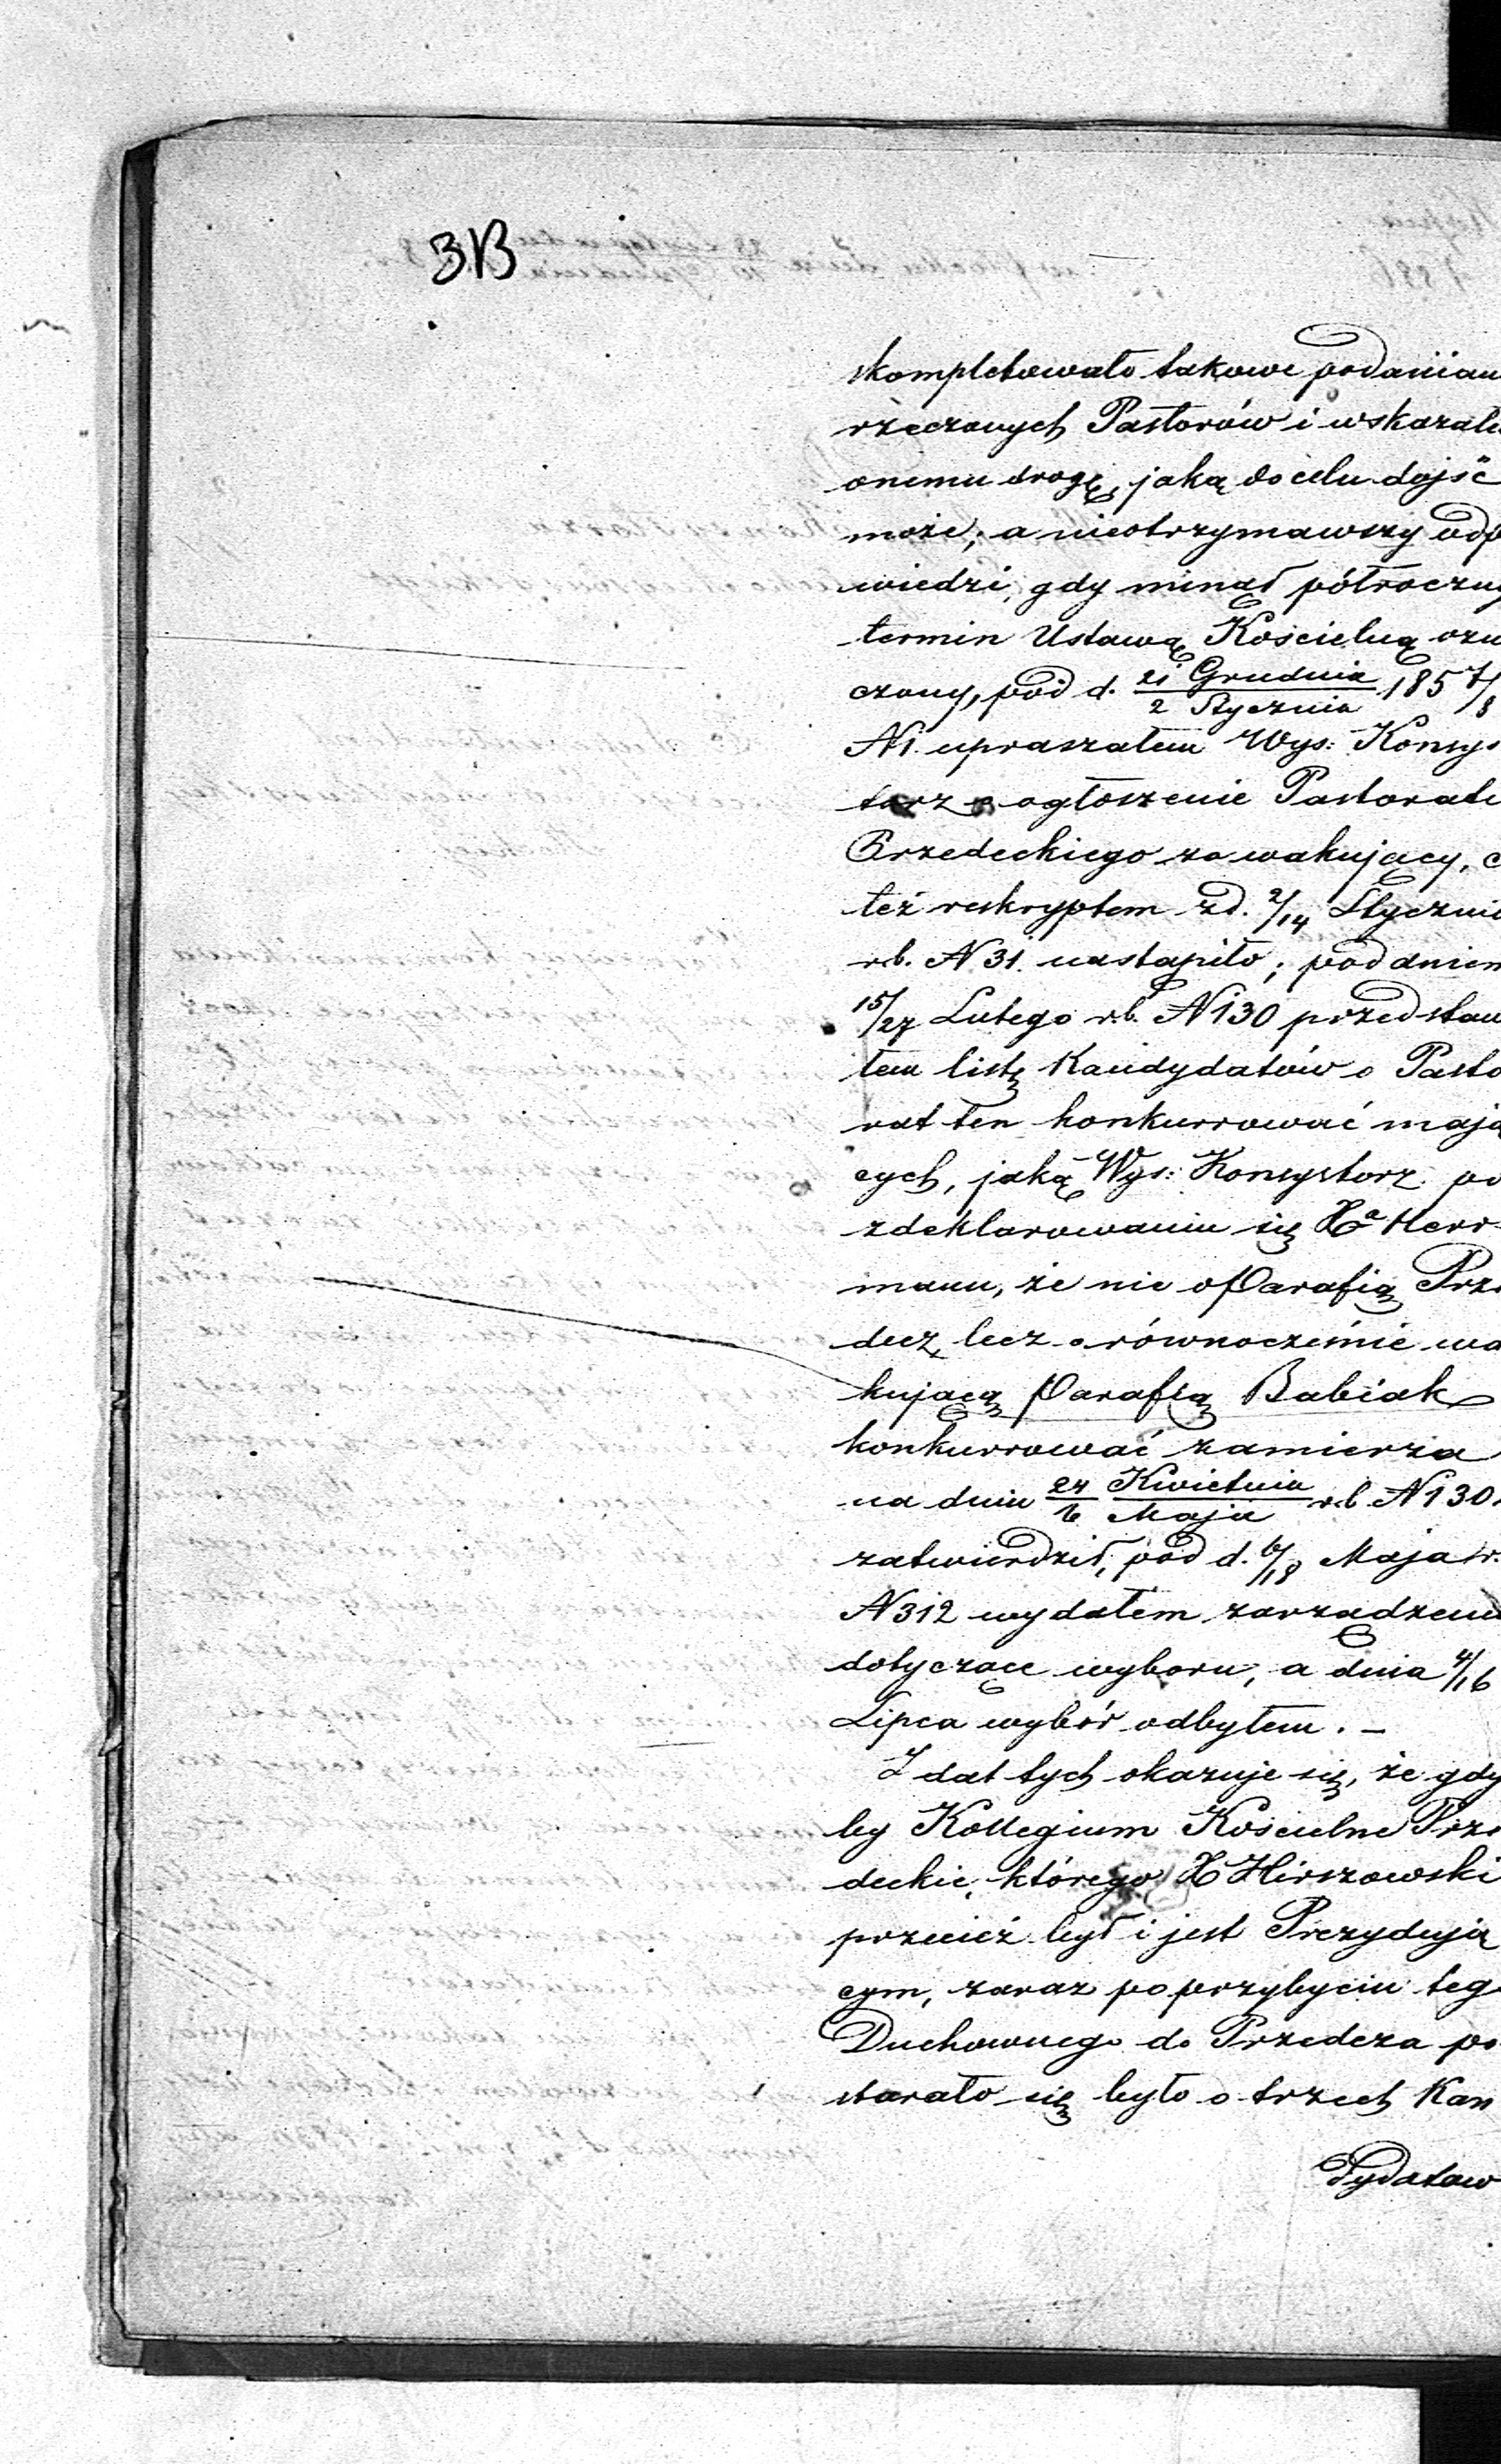 3B
skompletowało takowe podaniiam
rzeczonych Pastorów i wskazało
onemu drogę, jaką do celu dojść
może; a nieotrzymawszy odp
wiedzi, gdy minął półroczny
termin Ustawą Kościelną ozn
czony, pod d. 21 Grudnia / 2 Stycznia 1857/8
N1. upraszałem Wys: Konsys
torz o ogłoszenie Pastoratu
Przedeckiego za wakujący, c
też reskryptem z d. 2/14 Stycznia
r.b. N 31. nastąpiło; pod dniem
15/27 Lutego r.b. N 130 przedstaw
łem listę Kandydatów o Pasto
rat ten konkurrować mają
cych, jaką Wys: Konsystorz po
zdeklarowaniu się Xa Herr-
mann, że nie o Parafią Prze
decz, lecz o równocześnie wa
kującą Parafią Babiak
konkurrować zamierza
na dniu 24 Kwietnia / 6 Maja r.b. N 130.
zatwierdził, pod d. 6/18 Maja r.
N 312 wydałem zarządzeni
dotyczące wyboru, a dnia 4/16
Lipca wybór odbyłem. –
Z dat tych okazuje się, że gdy
by Kollegium Kościelne Prze
deckie, którego X Hirszowski
przecież był i jest Prezydują
cym, zaraz po przybyciu teg
Duchownego do Przedcza po
starało się było o trzech Kan
dydatów